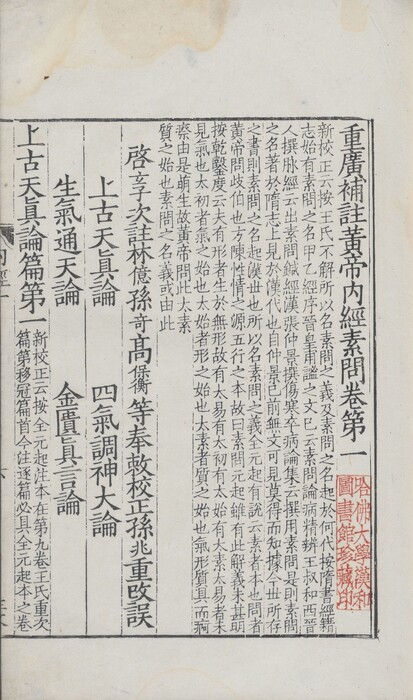 重廣補註黃帝內經素問卷第一
新校正云按王氏不解所以名素問之義及素問之名起於何代按隋書經籍
志始有素問之名甲乙經序晉皇甫謐之文已云素問論病精辨王叔和西晉
人撰脉經云出素問鍼經漢張仲景撰傷寒卒病論集云撰用素問是則素問
之名著於隋志上見於漢代也自仲景已前無文可見莫得而知據今世所存
之書則素問之名起漢世也所以名素問之義全元起有說云素者本也問者
黃帝問歧伯也方陳性情之源五行之本故曰素問元起雖有此解義未甚明
按乾鑿度云夫有形者生於無形故有太易有太初有太始有太素太易者未
見氣也太初者氣之始也太始者形之始也太素者質之始也氣形質具而痾
瘵由是萌生故黃帝問此太素
質之始也素問之名義或由此
啓玄子次註林億孫奇高保衡等奉敕校正孫兆重改誤
上古天眞論
四氣調神大論
生氣通天論
金匱眞言論
上古天眞論篇第一
新校正云按全元起注本在第九卷王氏重次
篇第移冠篇首今注逐篇必具全元起本之卷
哈佛大學漢和
圖書館珍藏印